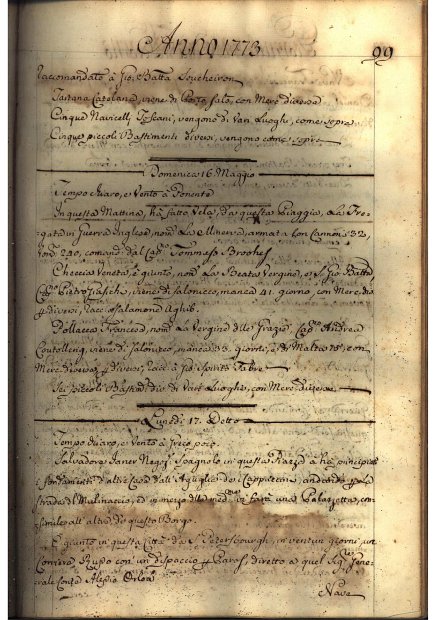 Anno 1773 99
Raccomandato à Gio. Batta Soucheiron
Tartana Catelana, viene di Porto Falò, con Merc. diverse
Cinque Navicelli Toscani, vengono di Vari Luoghi, come sopra
Cinque piccoli Bastimenti diversi, vengono come sopra
Domenica 16 Maggio
Tempo chiaro, e Vento à Ponente
In questa Mattina, ha fatto Vela, da questa Piaggia, la Fre-
gata di Guerra Inglese, nom. La Minerva, armata con Cannoni 32,
Uom. 220, comand. dal Cap. Tommaso
Checcia Veneta, è giunto, nom. La Beata Vergine, e S. Gio. Batta
Cap. Pietro, viene di Salonicco, manca 41 giorno con Merc.
diversi, racc. Salamone
Pollacca Francese, nom. La Vergine delle Grazie, Cap. Andrea
viene di Salonicco, manca 33 giorni, e di Malta 18, con
Merc. diverse diversi, racc. à Gio. Spirito Fabre
Sei piccoli Bastim. div. di Vari Luoghi, con Merc. diverse
Lunedi 17 Detto
Tempo chiaro, e Vento à
Salvadore Janer Negoz. Spagnolo in questa Piazza à principiato
i fondamenti d'altre Case dati Aguglie dei Cappuccini, andando
strada di Mulinaccio, ed in mezzo alle med. vi farà una Palazzetta, con
simile all'altra di questo Borgo.
È giunto in questa Città da S. Petersbourgh, in ventun giorni, un
Corriere Russo con un dispaccio Paros, diretto a quel Sig. Gene-
rale Conte Alessio Orlow
Nave